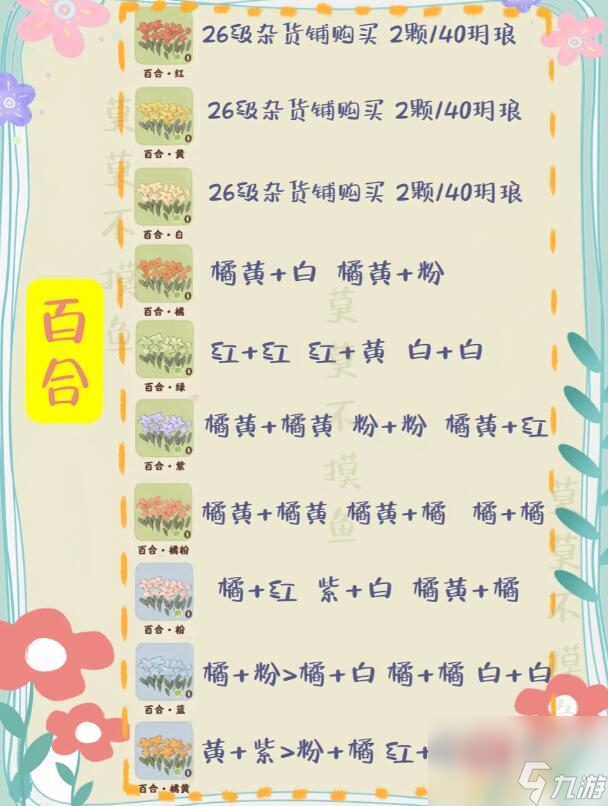 26级杂货铺购买 2颗/40玥琅
0
百合·红
26级杂货铺购买 2颗/40玥琅
0
百合·黄
26级杂货铺购买 2颗/40玥琅
0
百合·白
橘黄+白 橘黄+粉
0
百合·橘
百合
红+红 红+黄 白+白
0
百合·绿
橘黄+橘黄 粉+粉 橘黄+红
0
百合·紫
橘黄+橘黄 橘黄+橘 橘+橘
0
百合·橘粉
橘+红 紫+白 橘黄+橘
0
百合·粉
橘+粉>橘+白 橘+橘 白+白
0
百合·蓝
黄+紫>粉+橘 红+
0
百合·橘黄
莫莫不摸鱼
莫莫不摸鱼
莫莫不摸
九游